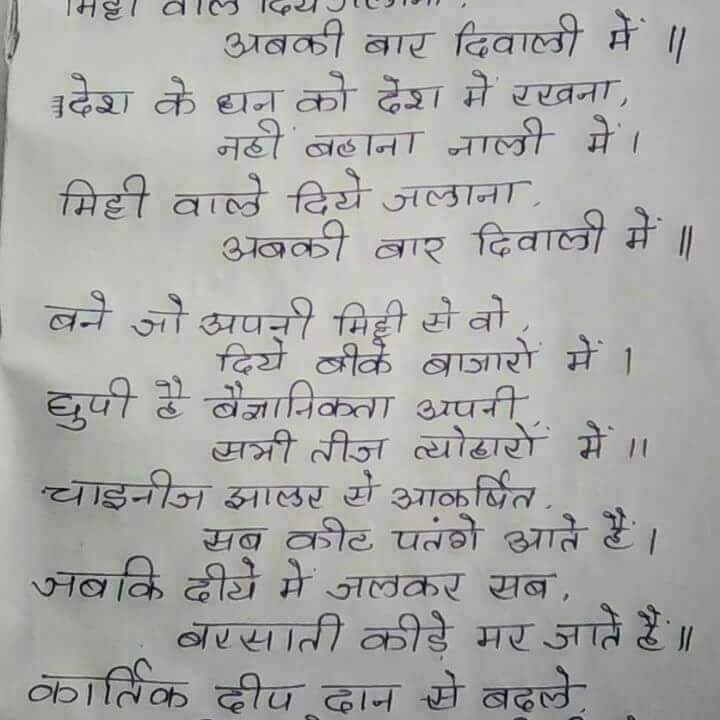 मिट्टी वाले दिये जलाना,
अबकी बार दिवाली में ॥
देश के धन को देश में रखना,
नहीं बहाना नाली में ।
मिट्टी वाले दिये जलाना,
अबकी बार दिवाली में ॥
बने जो अपनी मिट्टी से वो,
दिये बीके बाजारों में ।
छुपी है बैज्ञानिकता अपनी
सभी तीज त्योहारों में ॥
चाइनीज झालर से आकर्षित,
सब कीट पतंगे आते हैं ।
जबकि दीये में जलकर सब,
बरसाती कीड़े मर जाते हैं ॥
कार्तिक दीप दान से बदले,